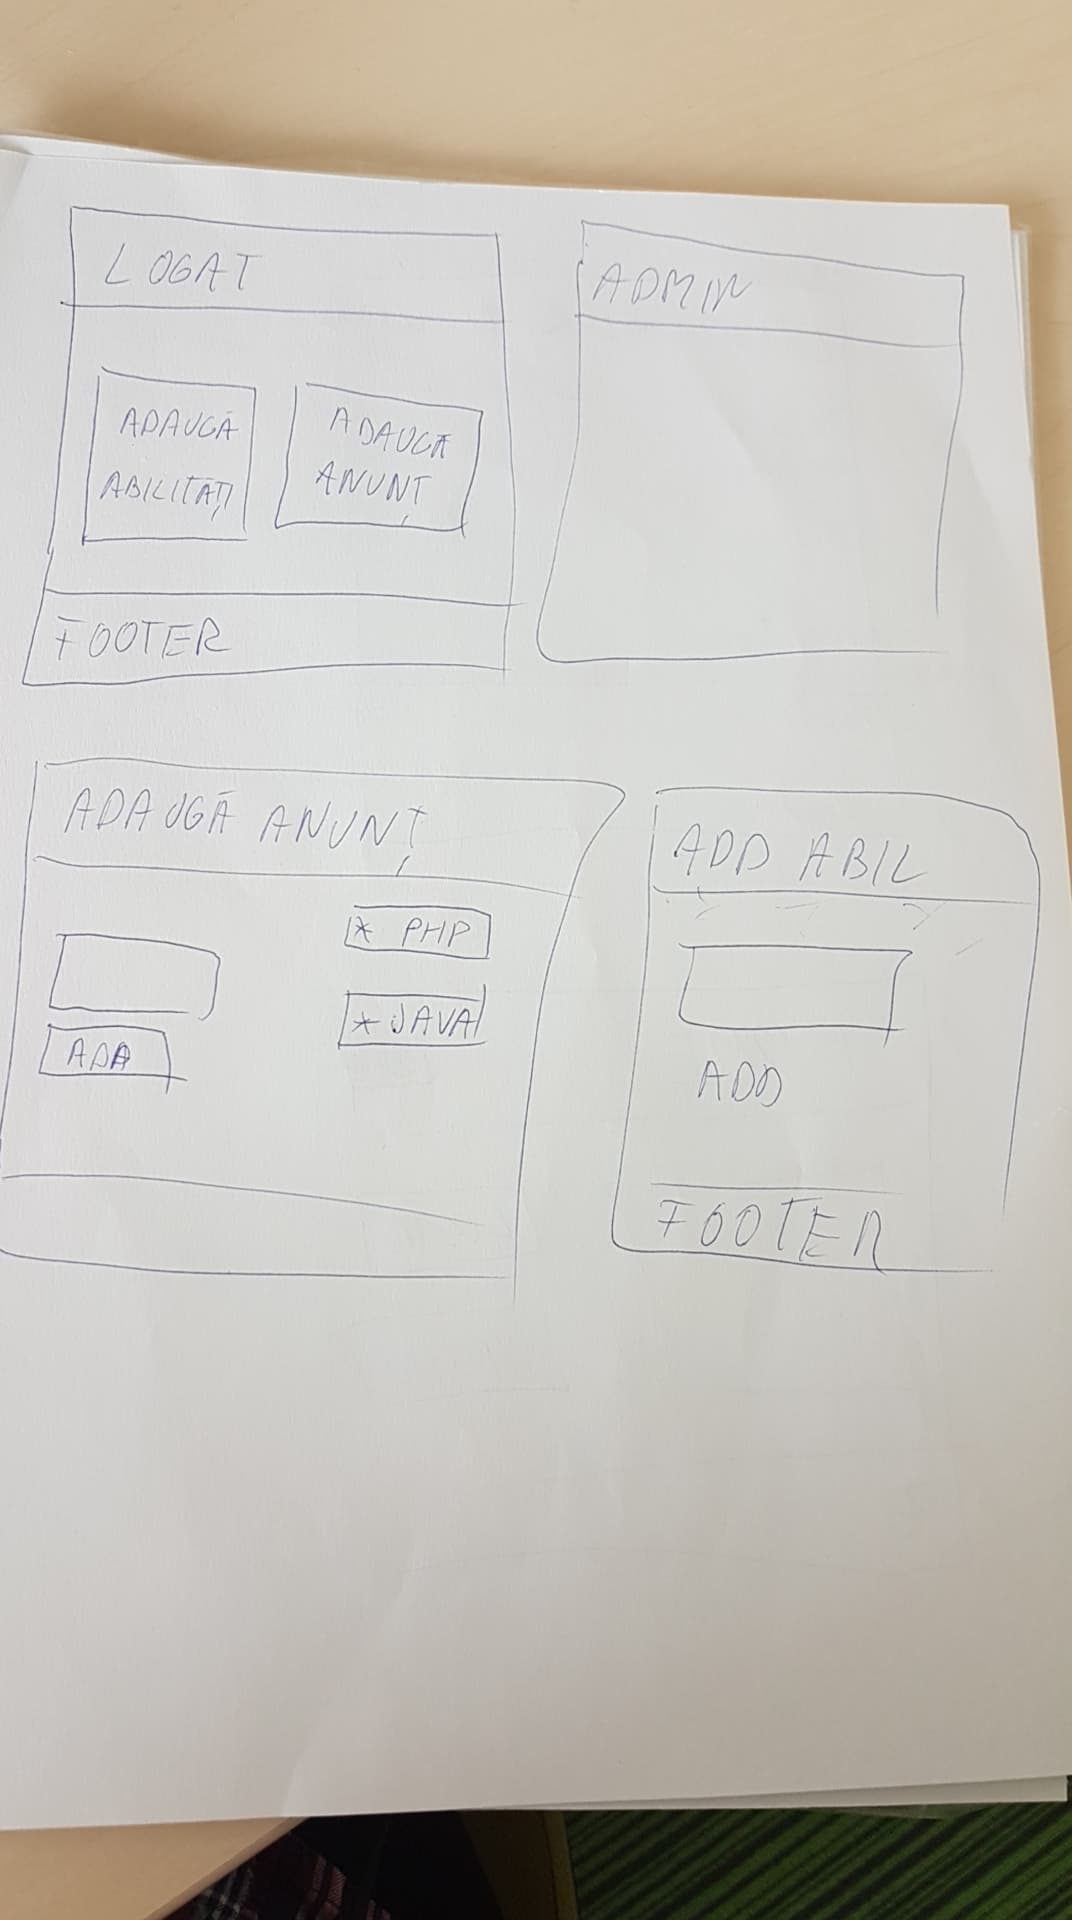 LOGAT
ADAUGĂ
ABILITĂȚI
ADAUGĂ
ANUNȚ
FOOTER
ADMIN
ADAUGĂ ANUNȚ
* PHP
* JAVA
ADD
ADD ABIL
ADD
FOOTER